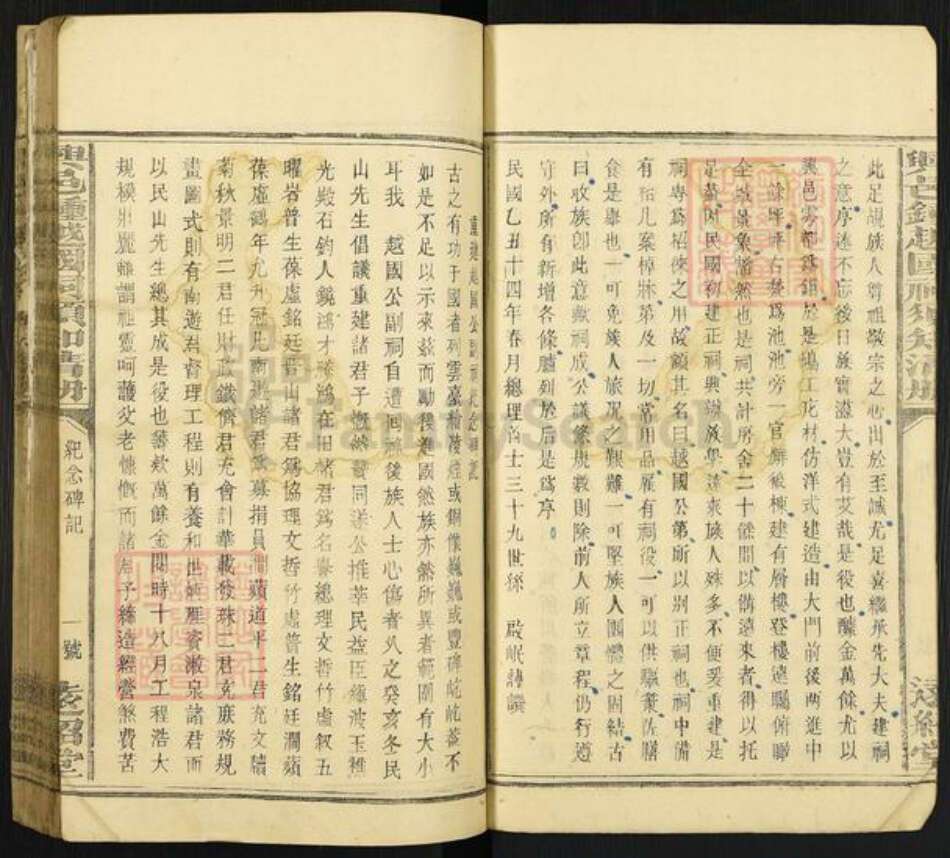 此足覘族人尊祖敬宗之心出於至誠尤足喜繼承先大夫建祠
之意序述不忘後日發實溢大豈有艾哉是役也醵金萬餘尤以
興邑雾都於是鳩工庀材仿洋式建造由大門前後兩進中
一餘坪坪右鑿爲池池旁一官廨數棟建有層樓登樓遠矚俯瞰
全城景象豁然也是祠共計房舍二十餘間以備遠來者得以托
足蓋因民國初建正祠興辦族學遠來族人殊多不便爰重建是
祠專爲招徠之用故顏其名曰越國公第所以別正祠也祠中備
有枱几案棹牀笫及一切常用品雇有祠役一可以供驅策佐膳
食是舉也一可免族人旅況之艱難一可堅族人團體之固結古
曰收族卽此意歟祠成公議條規數則除前人所立章程仍行遵
守外所有新增各條臚列於后是爲序
民國乙丑十四年春月總理首士三十九世孫 啟岷謹譔
重建越國公副祠紀念碑記
古之有功于國者列雲臺繪凌煙或銅像巍巍或豐碑屹屹蓋不
如是不足以示來茲而勵後進國然族亦然所異者範圍有大小
耳我 越國公副祠自遭回祿後族人士心傷者久之癸亥冬民
山先生倡議重建諸君子慨然贊同遂公推萃民益臣鍾波玉裡
光殿石鈞人鏡鴻才勝鴻在田諸君爲名譽總理文哲竹虛叙五
曜岩普生葆虛銘廷香山諸君爲協理文哲竹虛普生銘廷瀾蘋
葆虛鶴年允升冠凡南遊諸君爲募捐員瀾蘋道平二君充文牘
菊秋景明二君任財政鐵儕君充會計華載發珠二君克庶務規
畫圖式則有南遊君督理工程則有養和世炳涯賓漱泉諸君而
以民山先生總其成是役也醵欵萬餘金閱時十八月工程浩大
規模壯麗雖謂祖靈呵護父老慷慨而諸君子締造經營煞費苦
紀念碑記
一號